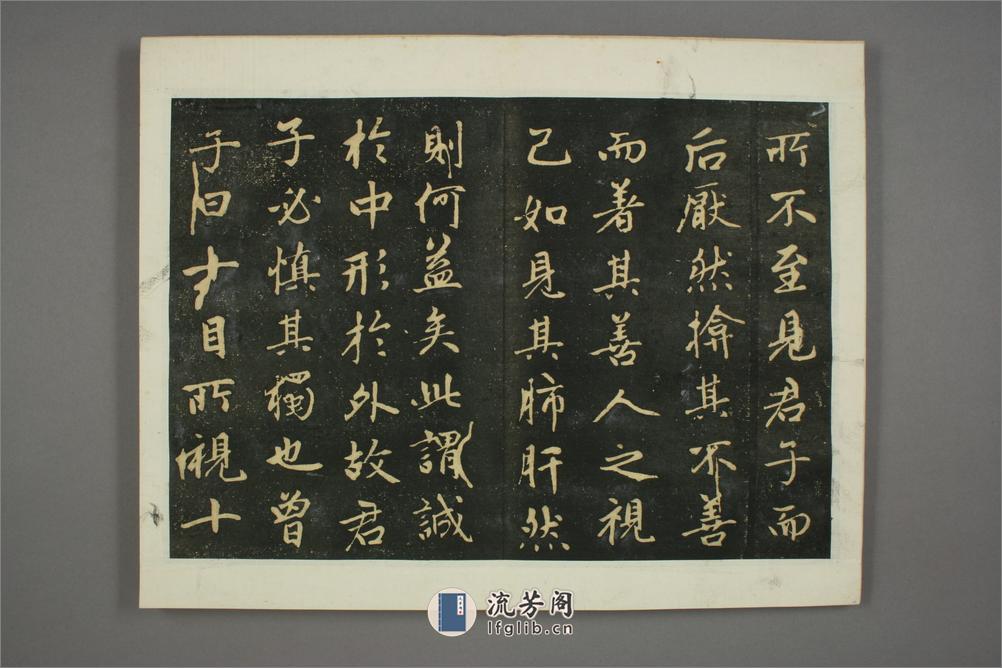 所不至見君子而
后厭然揜其不善
而著其善人之視
己如見其肺肝然
則何益矣此謂誠
於中形於外故君
子必慎其獨也曾
子曰十目所視十
流芳阁
lfglib.cn